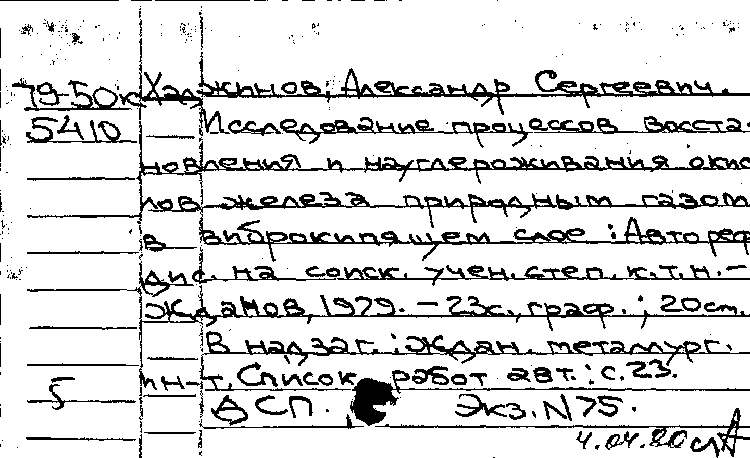 79-50к Халжинов, Александр Сергеевич.
5410 Исследование процессов восста-
новления и науглероживания окис
лов железа природным газом
в виброкипящем слое : Автореф
дис. на соиск. учен. степ. к.т.н. –
Жданов, 1979. – 23с., граф. ; 20см.
В надзаг. : Ждан. металлург.
5 ин-т. Список работ авт. : с. 23.
ДСП. Экз. N75.
4.04.80